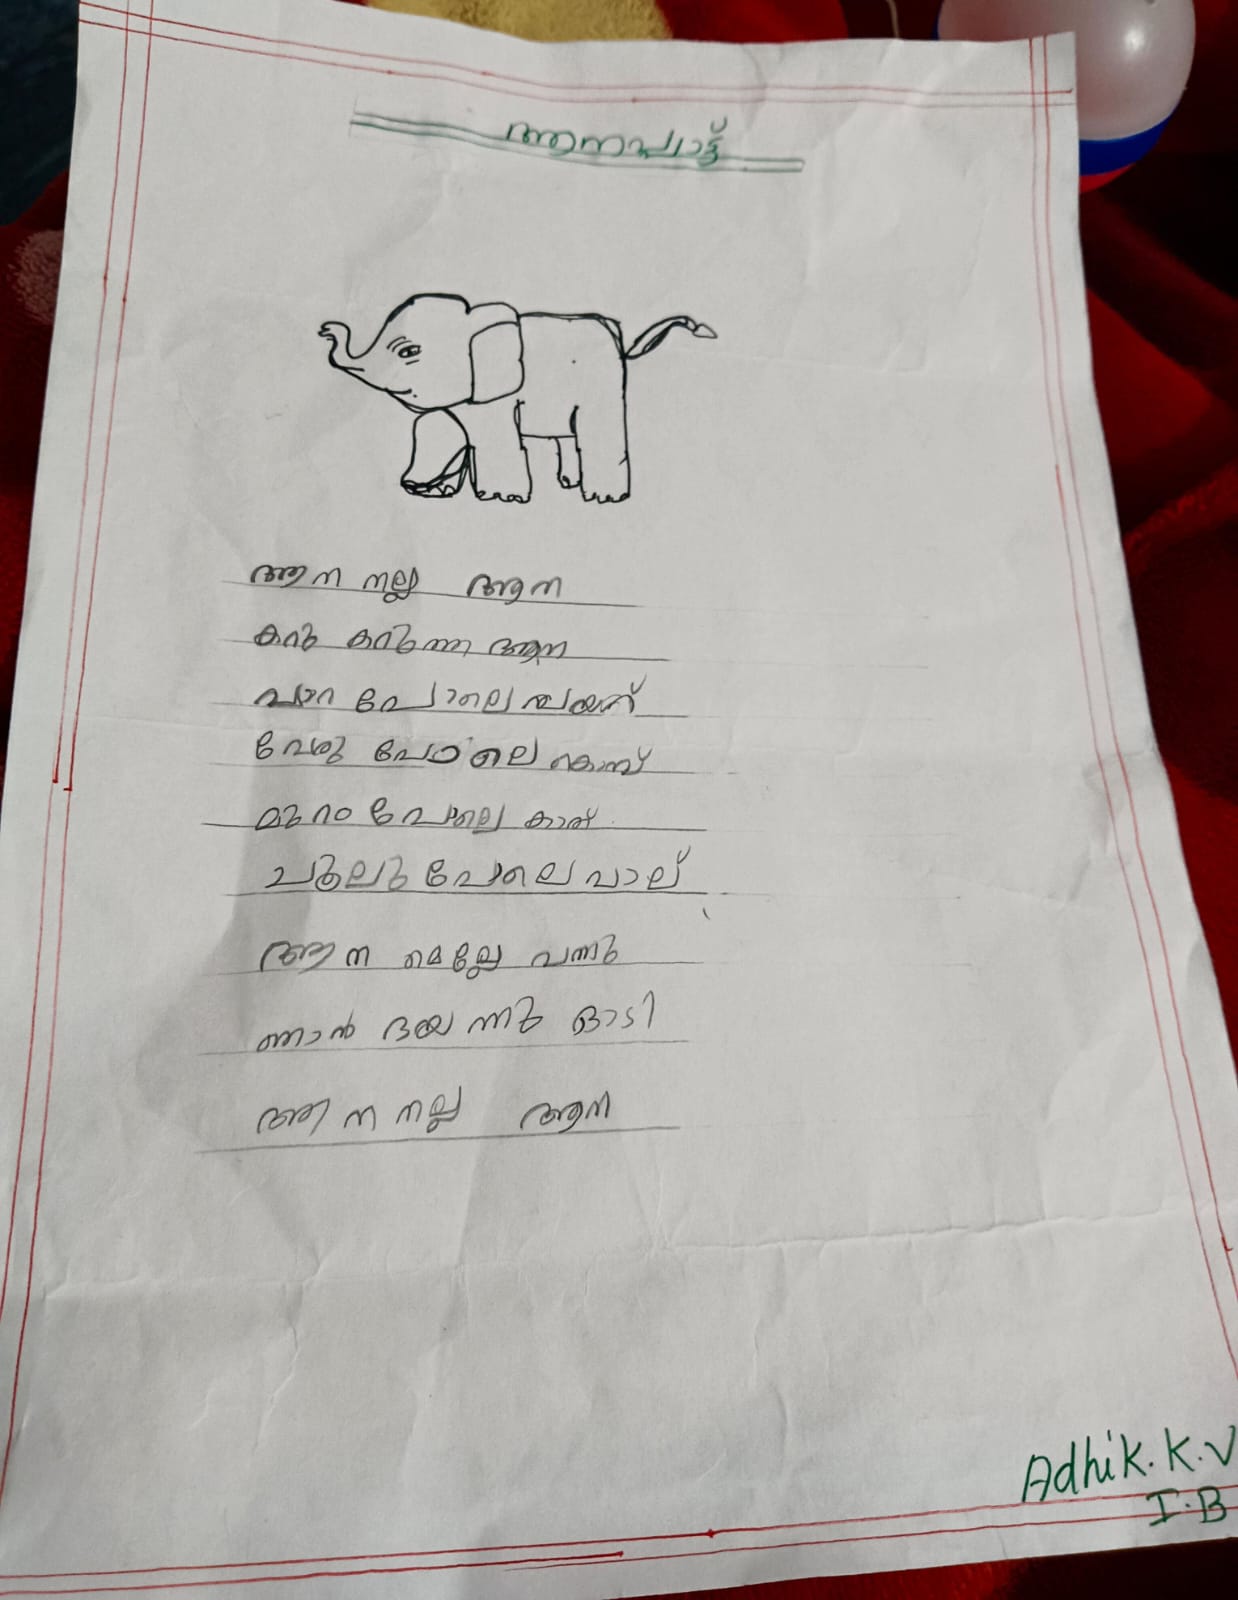 ആനപ്പാട്ട്
ആന നല്ല ആന
കറു കറുത്ത ആന
പാറ പോലെ
പോലെ കൊമ്പ്
മുറം പോലെ കാത്
പോലെ വാല്
ആന മെല്ലേ വന്നു
ഞാൻ ഭയന്നു ഓടി
ആന നല്ല ആന
Adhik. K. V
I. B